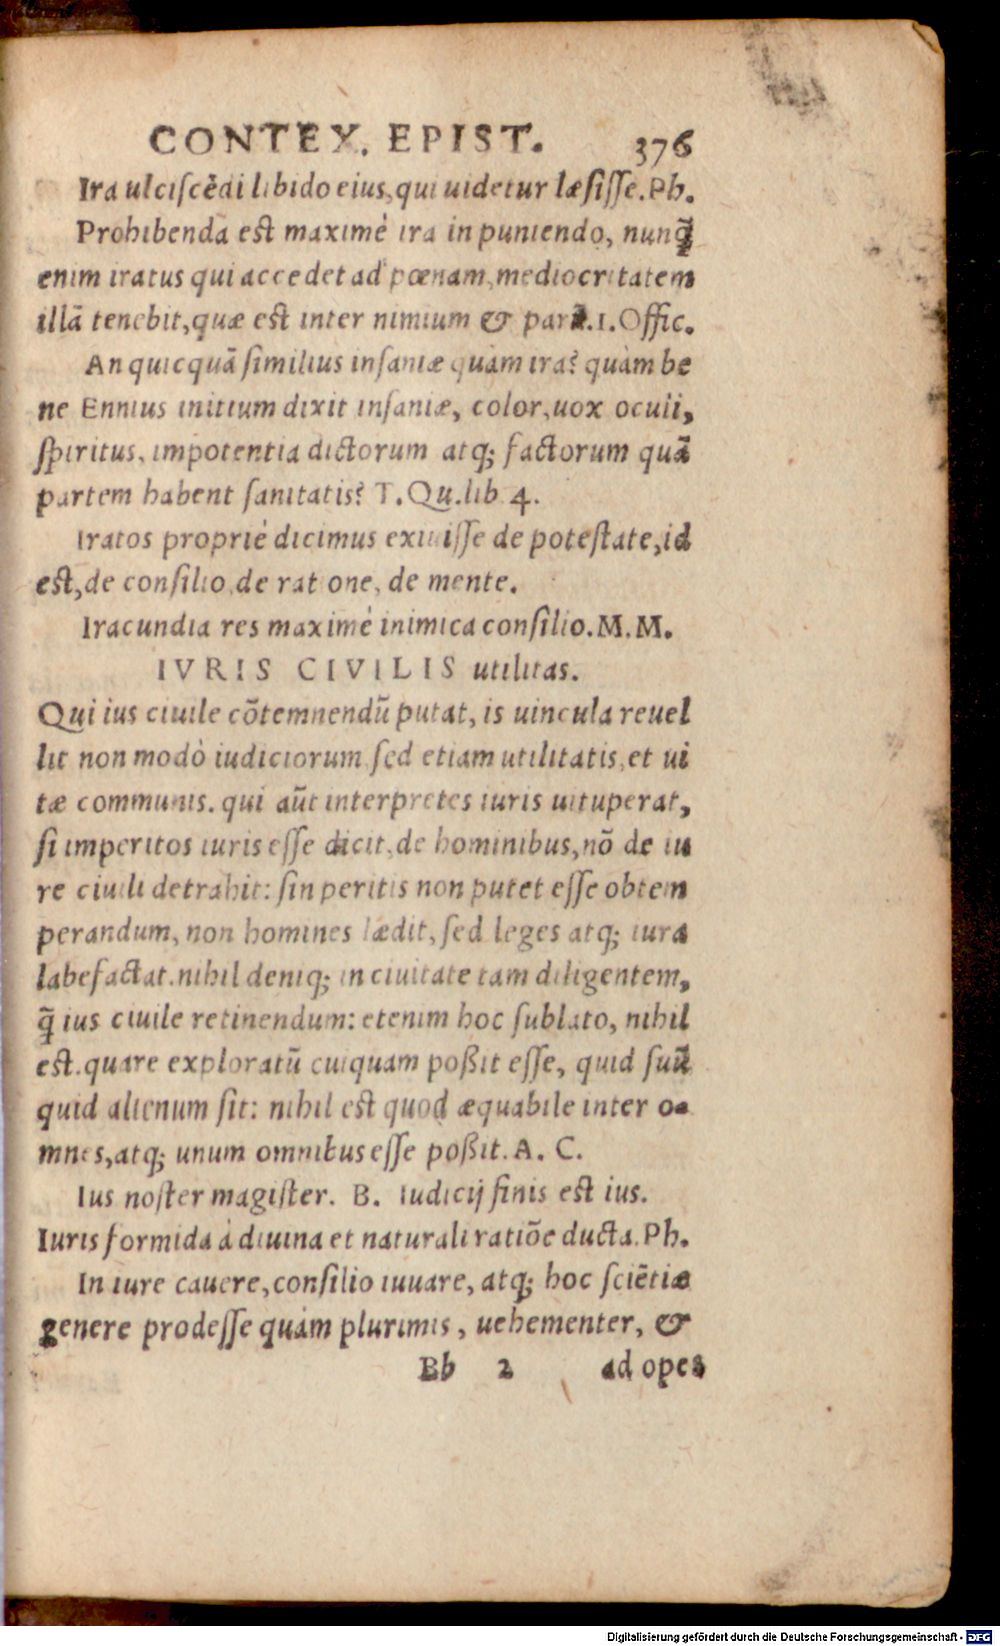 CONTEX. EPIST. 376
Ira ulciscẽdi libido eius, qui uidetur læsisse. Ph.
Prohibenda est maximè ira in puniendo, nunq̃
enim iratus qui accedet ad pœnam, mediocritatem
illã tenebit, quæ est inter nimium & parũ. 1. Offic.
An quicquã similius insaniæ quàm ira? quàm be
ne Ennius initium dixit insaniæ, color, uox oculi,
spiritus, impotentia dictorum atq; factorum quã
partem habent sanitatis? T. Qu. lib 4.
Iratos propriè dicimus exiuisse de potestate, id
est, de consilio, de ratione, de mente.
Iracundia res maximè inimica consilio. M. M.
IVRIS CIVILIS utilitas.
Qui ius ciuile cõtemnendũ putat, is uincula reuel
lit non modò iudiciorum sed etiam utilitatis, et ui
tæ communis. qui aũt interpretes iuris uituperat,
si imperitos iuris esse dicit, de hominibus, nõ de iu
re ciuili detrahit: sin peritis non putet esse obtem
perandum, non homines lædit, sed leges atq; iura
labefactat. nihil deniq; in ciuitate tam diligentem,
q̃ ius ciuile retinendum: etenim hoc sublato, nihil
est. quare exploratũ cuiquam poßit esse, quid suũ
quid alienum sit: nihil est quod æquabile inter o-
mnes, atq; unum omnibus esse poßit. A. C.
Ius noster magister. B. Iudicij finis est ius.
Iuris formida à diuina et naturali ratiõe ducta. Ph.
In iure cauere, consilio iuuare, atq; hoc sciẽtiæ
genere prodesse quàm plurimis, uehementer, &
Bb 2 ad opes
Digitalisierung gefördert durch die Deutsche Forschungsgemeinschaft - DFG